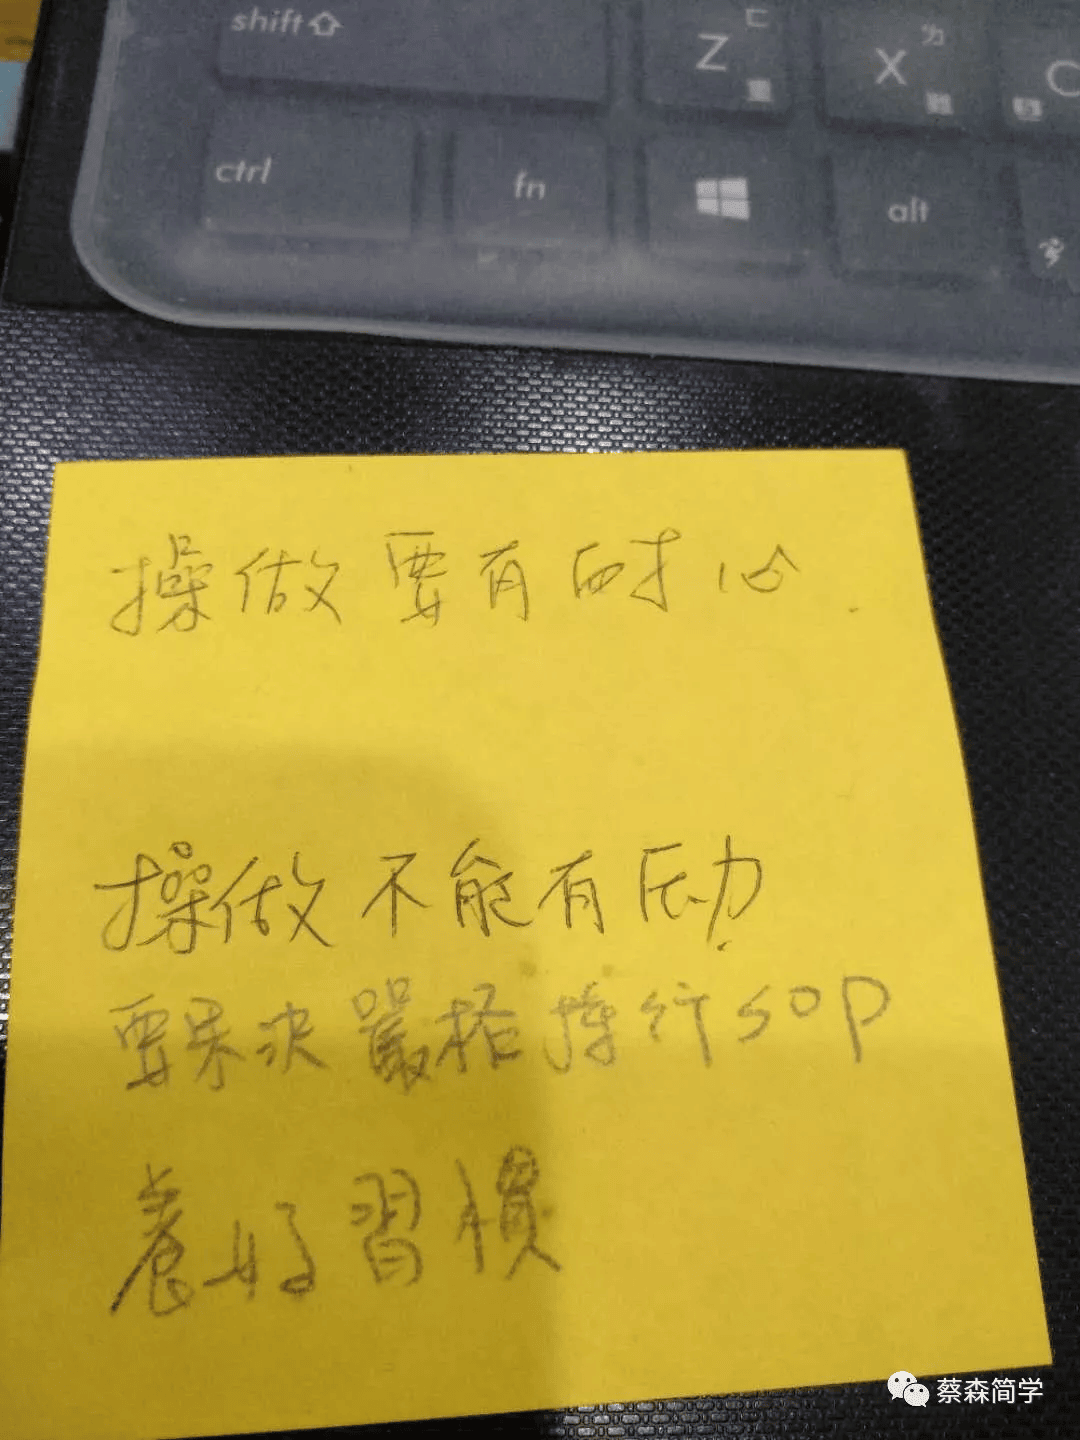 shift Z ㄈ 重 X ㄌ 難 C
ctrl fn alt
操做要有耐心.
操做不能有压力
要果決嚴格執行SOP
養好習慣
蔡森简学